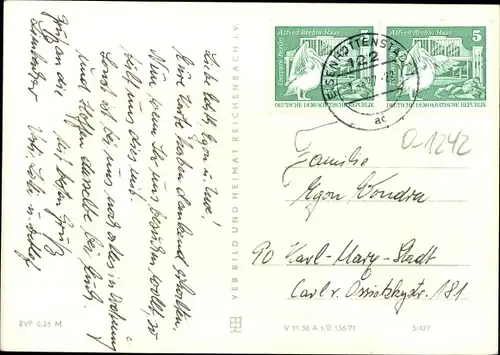 Liebe Käthe, Egon u. Uwe!
Eure Karte haben dankend erhalten.
Nun wenn Ihr uns besuchen wollt, so
ruft uns dies mit.
Sonst ist bei uns noch alles in Ordnung
und hoffen dasselbe bei Euch.
Mit besten Grüß
Gruß an die
VEB BILD UND HEIMAT REICHENBACH I. V.
EVP 0,25 M
Alfred Brehm Haus
Tierpark Berlin
DEUTSCHE DEMOKRATISCHE REPUBLIK
Alfred Brehm Haus
5
DEUTSCHE DEMOKRATISCHE REPUBLIK
EISENHÜTTENSTADT
122
ac
O-1242
Familie
Egon Wondra
90 Karl-Marx-Stadt
Carl v. Ossietzkystr. 181
V 11 50 A 1/B 136/71
5/427